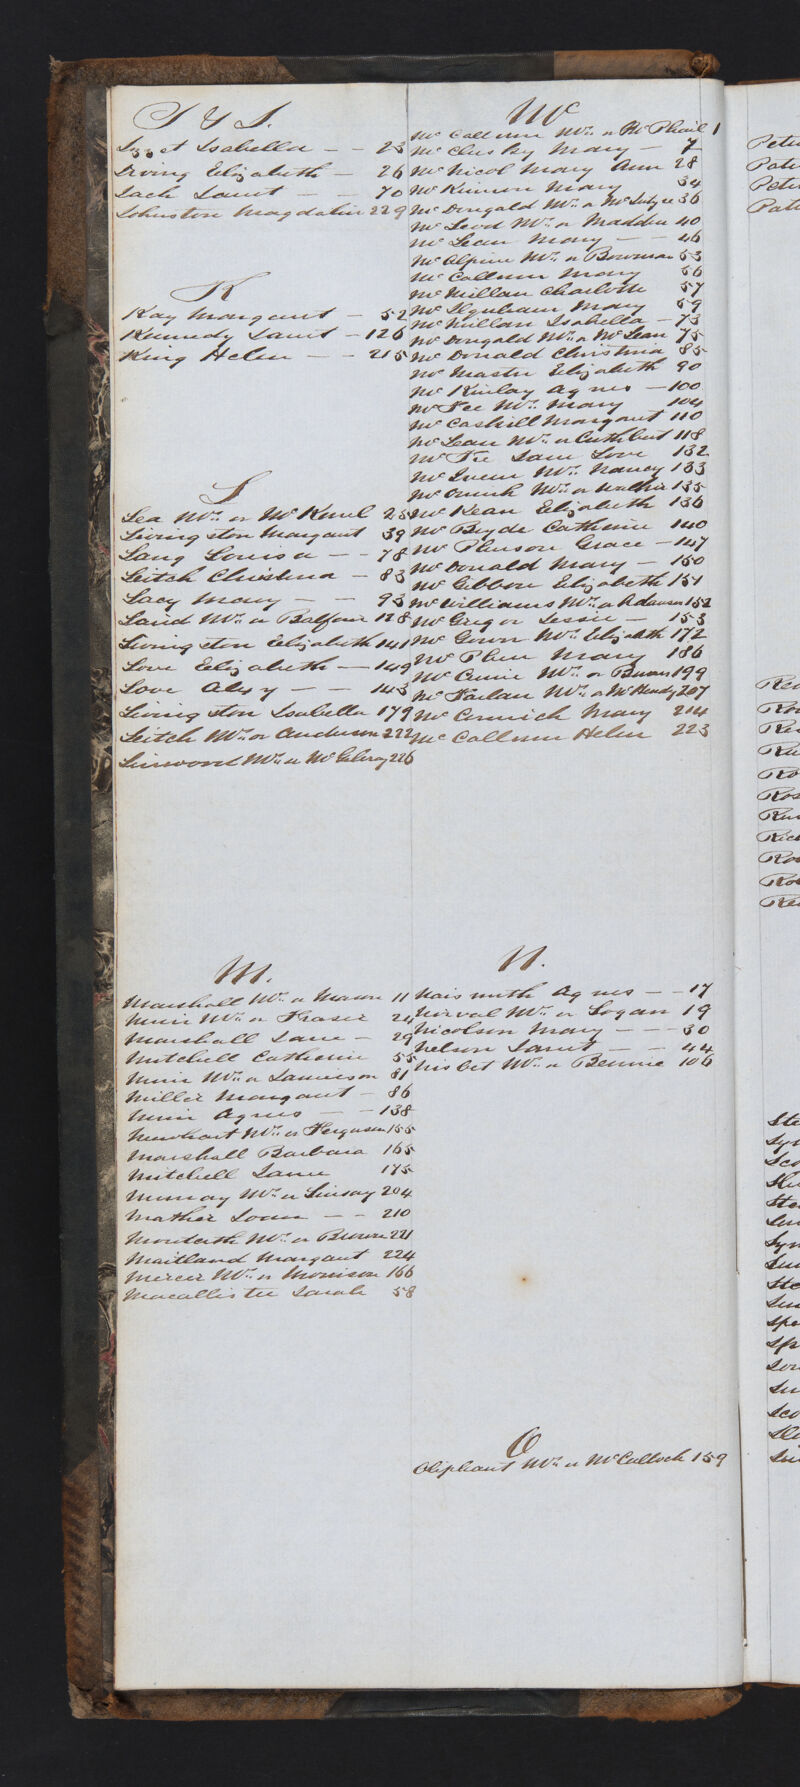 I & J.
Izzet Isabella - - 23
Irving Elizabeth - 26
Jack Janet - - 70
Johnston Magdalin 229
K
Kay Margaret - 52
Kennedy Janet - 126
King Helen - - 215
L
Lea Mrs or McKnul 25
Livingston Margaret 39
Lang Louisa - - 78
Leitch Christina - 83
Lacy Mary - - 93
Laird Mrs or Balfour 128
Livingston Elizabeth 141
Love Elizabeth - 149
Love Alexy - - 143
Livingston Isabella 179
Leitch Mrs or Anderson 222
Linwood Mrs or McGilvray 226
M.
Marshall Mrs or Mason 11
Muir Mrs or Fraser 24
Marshall Jane - 29
Mitchell Catherine 55
Muir Mrs or Jamieson 81
Miller Margaret - 86
Muir Agnes - - 138
Mrs or Ferguson 155
Marshall Barbara 165
Mitchell Jane 175
Murray Mrs or Lindsay 204
Mather Joan - - 210
Monteith Mrs or Brown 221
Maitland Margaret 224
Mercer Mrs or Morrison 166
Macallister Sarah 58
Mc
McCallum Mrs or McPhail 1
McCluskey Mary - 7
McNicol Mary Ann 28
McKinnon Mary 34
McDougald Mrs or McIntyre 36
McLeod Mrs or Madden 40
McLean Mary - - 46
McAlpine Mrs or Bowman 53
McCallum Mary 56
McMillan Charlotte 57
Mary 59
McMillan Isabella - 73
McDougald Mrs or McLean 75
McDonald Christina 85
McMaster Elizabeth 90
McKinlay Agnes - 100
McFee Mrs Mary 104
McCaskill Margaret 110
McLean Mrs or Cuthbert 118
McFie Jane Love 132
McQueen Mrs Nancy 133
Mrs or Walker 135
McKean Elizabeth 136
McBryde Catherine 140
McPherson Grace - 147
McDonald Mary - 150
McGibbon Elizabeth 151
McWilliams Mrs or Adamson 152
McGregor Jessie - 153
McGown Mrs Elizabeth 172
McPhee Mary 186
Mrs or 199
McFarlan Mrs or McKendy 207
McCormick Mary 214
McCallum Helen 223
N.
Naismith Agnes - - 17
Norval Mrs or Logan 19
Nicolson Mary - - - 30
Nelson Janet - - 44
Nisbet Mrs or Bennie 106
O
Oliphant Mrs or McCulloch 159